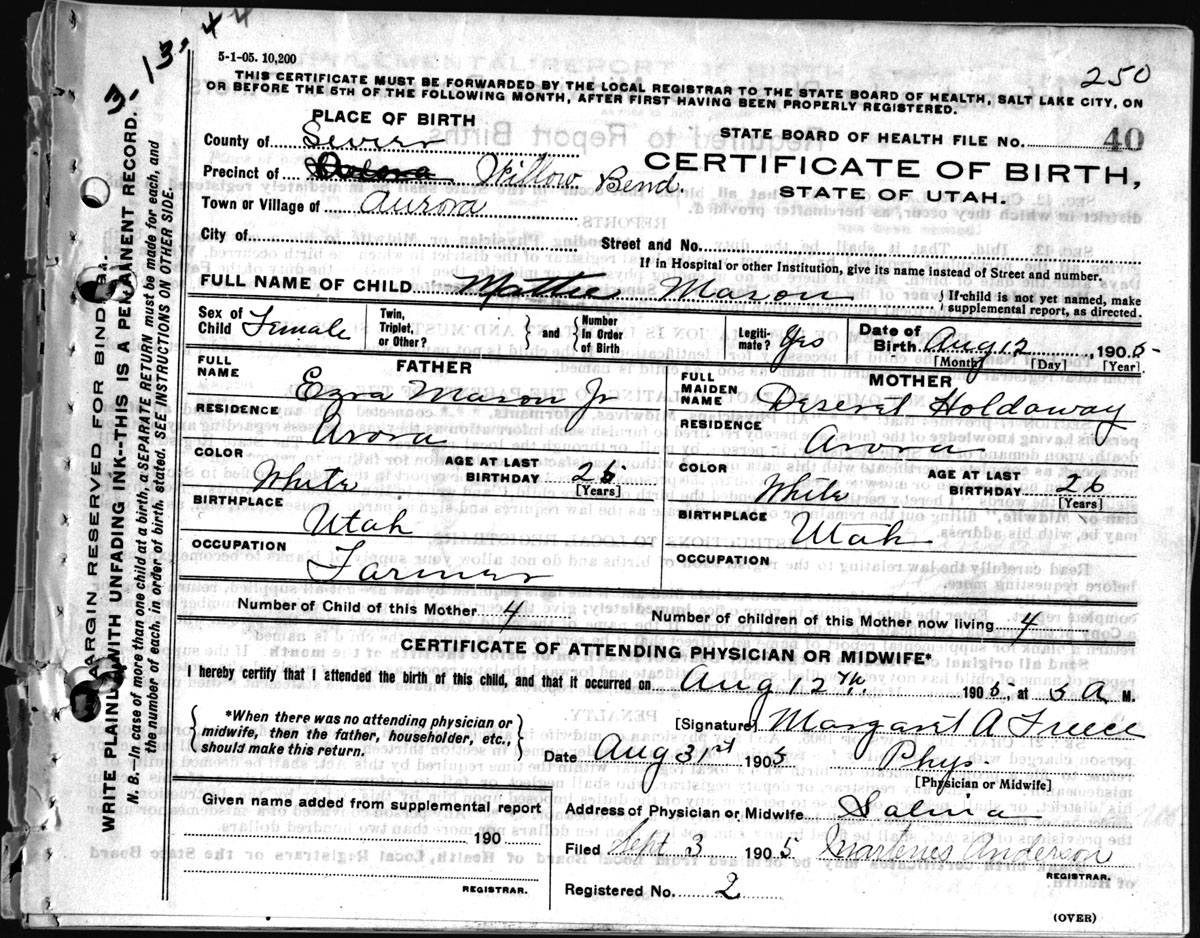 3-13-44
5-1-05. 10,200
250
THIS CERTIFICATE MUST BE FORWARDED BY THE LOCAL REGISTRAR TO THE STATE BOARD OF HEALTH, SALT LAKE CITY, ON
OR BEFORE THE 5TH OF THE FOLLOWING MONTH, AFTER FIRST HAVING BEEN PROPERLY REGISTERED.
PLACE OF BIRTH
STATE BOARD OF HEALTH FILE NO. 40
County of Sevier
CERTIFICATE OF BIRTH,
Precinct of Willow Bend.
STATE OF UTAH.
Town or Village of Aurora
City of
Street and No.
If in Hospital or other Institution, give its name instead of Street and number.
FULL NAME OF CHILD Mattie Mason
{If child is not yet named, make
supplemental report, as directed.
Sex of Child Female
Twin, Triplet, or Other?
} and {
Number in Order of Birth
Legiti-mate? Yes
Date of Birth Aug 12, 1905
[Month] [Day] [Year]
FATHER
FULL NAME
Ezra Mason Jr
RESIDENCE
Arora
COLOR
White
AGE AT LAST BIRTHDAY 26
[Years]
BIRTHPLACE
Utah
OCCUPATION
Farmer
MOTHER
FULL MAIDEN NAME
Deseret Holdaway
RESIDENCE
Arora
COLOR
White
AGE AT LAST BIRTHDAY 26
[Years]
BIRTHPLACE
Utah
OCCUPATION
Number of Child of this Mother 4
Number of children of this Mother now living 4
CERTIFICATE OF ATTENDING PHYSICIAN OR MIDWIFE*
I hereby certify that I attended the birth of this child, and that it occurred on Aug 12th. 1905, at 5 A M.
{*When there was no attending physician or
midwife, then the father, householder, etc.,
should make this return.}
[Signature] Margaret A Freece
Date Aug 31st 1905
Phys
[Physician or Midwife]
Given name added from supplemental report
190
REGISTRAR.
Address of Physician or Midwife Salina
Filed Sept 3 1905 Anderson
REGISTRAR.
Registered No. 2
(OVER)
MARGIN RESERVED FOR BINDERS.
WRITE PLAINLY WITH UNFADING INK--THIS IS A PERMANENT RECORD.
N. B.—In case of more than one child at a birth, a SEPARATE RETURN must be made for each, and
the number of each, in order of birth, stated. SEE INSTRUCTIONS ON OTHER SIDE.